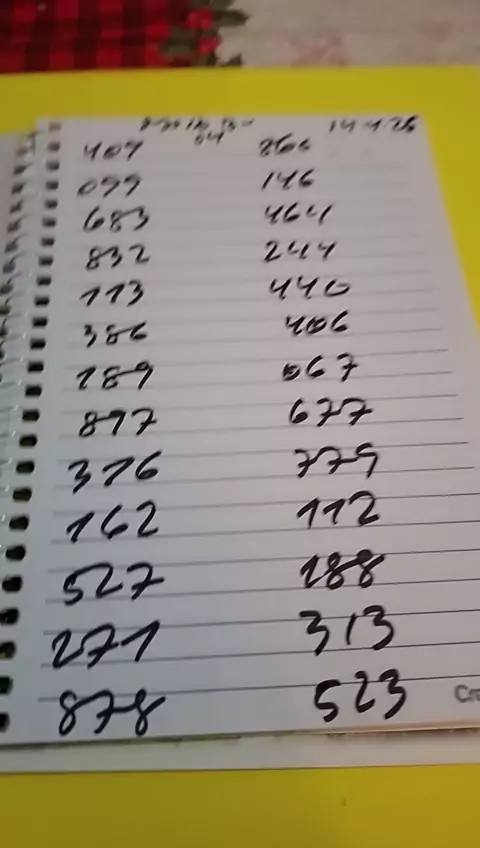 14-1-26
409 866
099 146
683 464
832 244
113 440
386 406
189 067
897 677
316 779
162 112
527 188
271 313
878 523